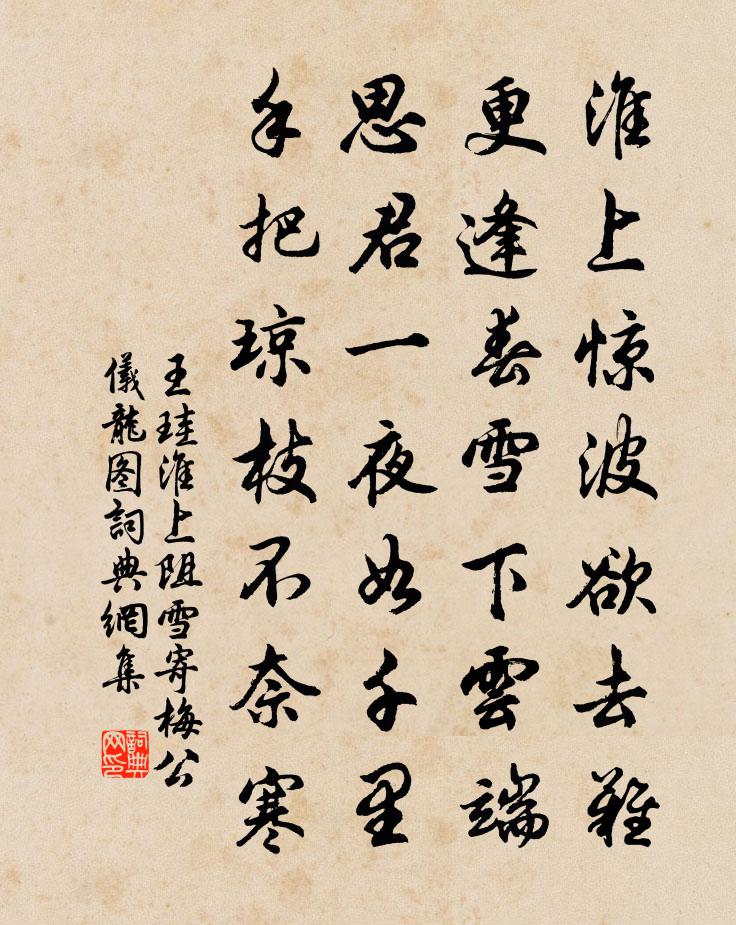 淮上惊波欲去難
更逢春雪下雲端
思君一夜如千里
手把琼枝不奈寒
王珪淮上阻雪寄梅公
儀龍图詞典網集
詞典网印